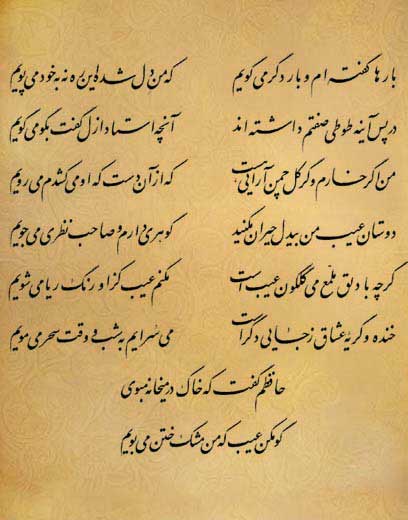 بارها گفته ام و بار دگر می گویم که من دل شده این ره نه به خود می پویم
در پس آینه طوطی صفتم داشته اند آنچه استاد ازل گفت بگو می گویم
من اگر خارم و گر گل چمن آرایی هست که از آن دست که او می کشدم می رویم
دوستان عیب من بیدل حیران مکنید گوهری دارم و صاحب نظری می جویم
گرچه با دلق ملمع می گلگون عیب است مکنم عیب کز او رنگ ریا می شویم
خنده و گریهٔ عشاق ز جایی دگر است می سرایم به شب و وقت سحر می مویم
حافظم گفت که خاک در میخانه مبوی
گو مکن عیب که من مشک ختن می بویم